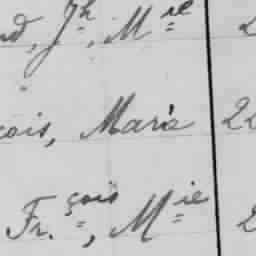 nd, Jh, Mie 2
çois, Marie 22
Fr.çois, Mie 2